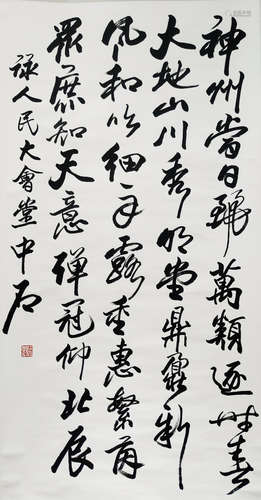 神州當日麗萬類逐時春
大地山川秀明堂鼎鼐新
風和吹細露惠繁茵
庶知天意彈冠仰北辰
人民大會堂中石